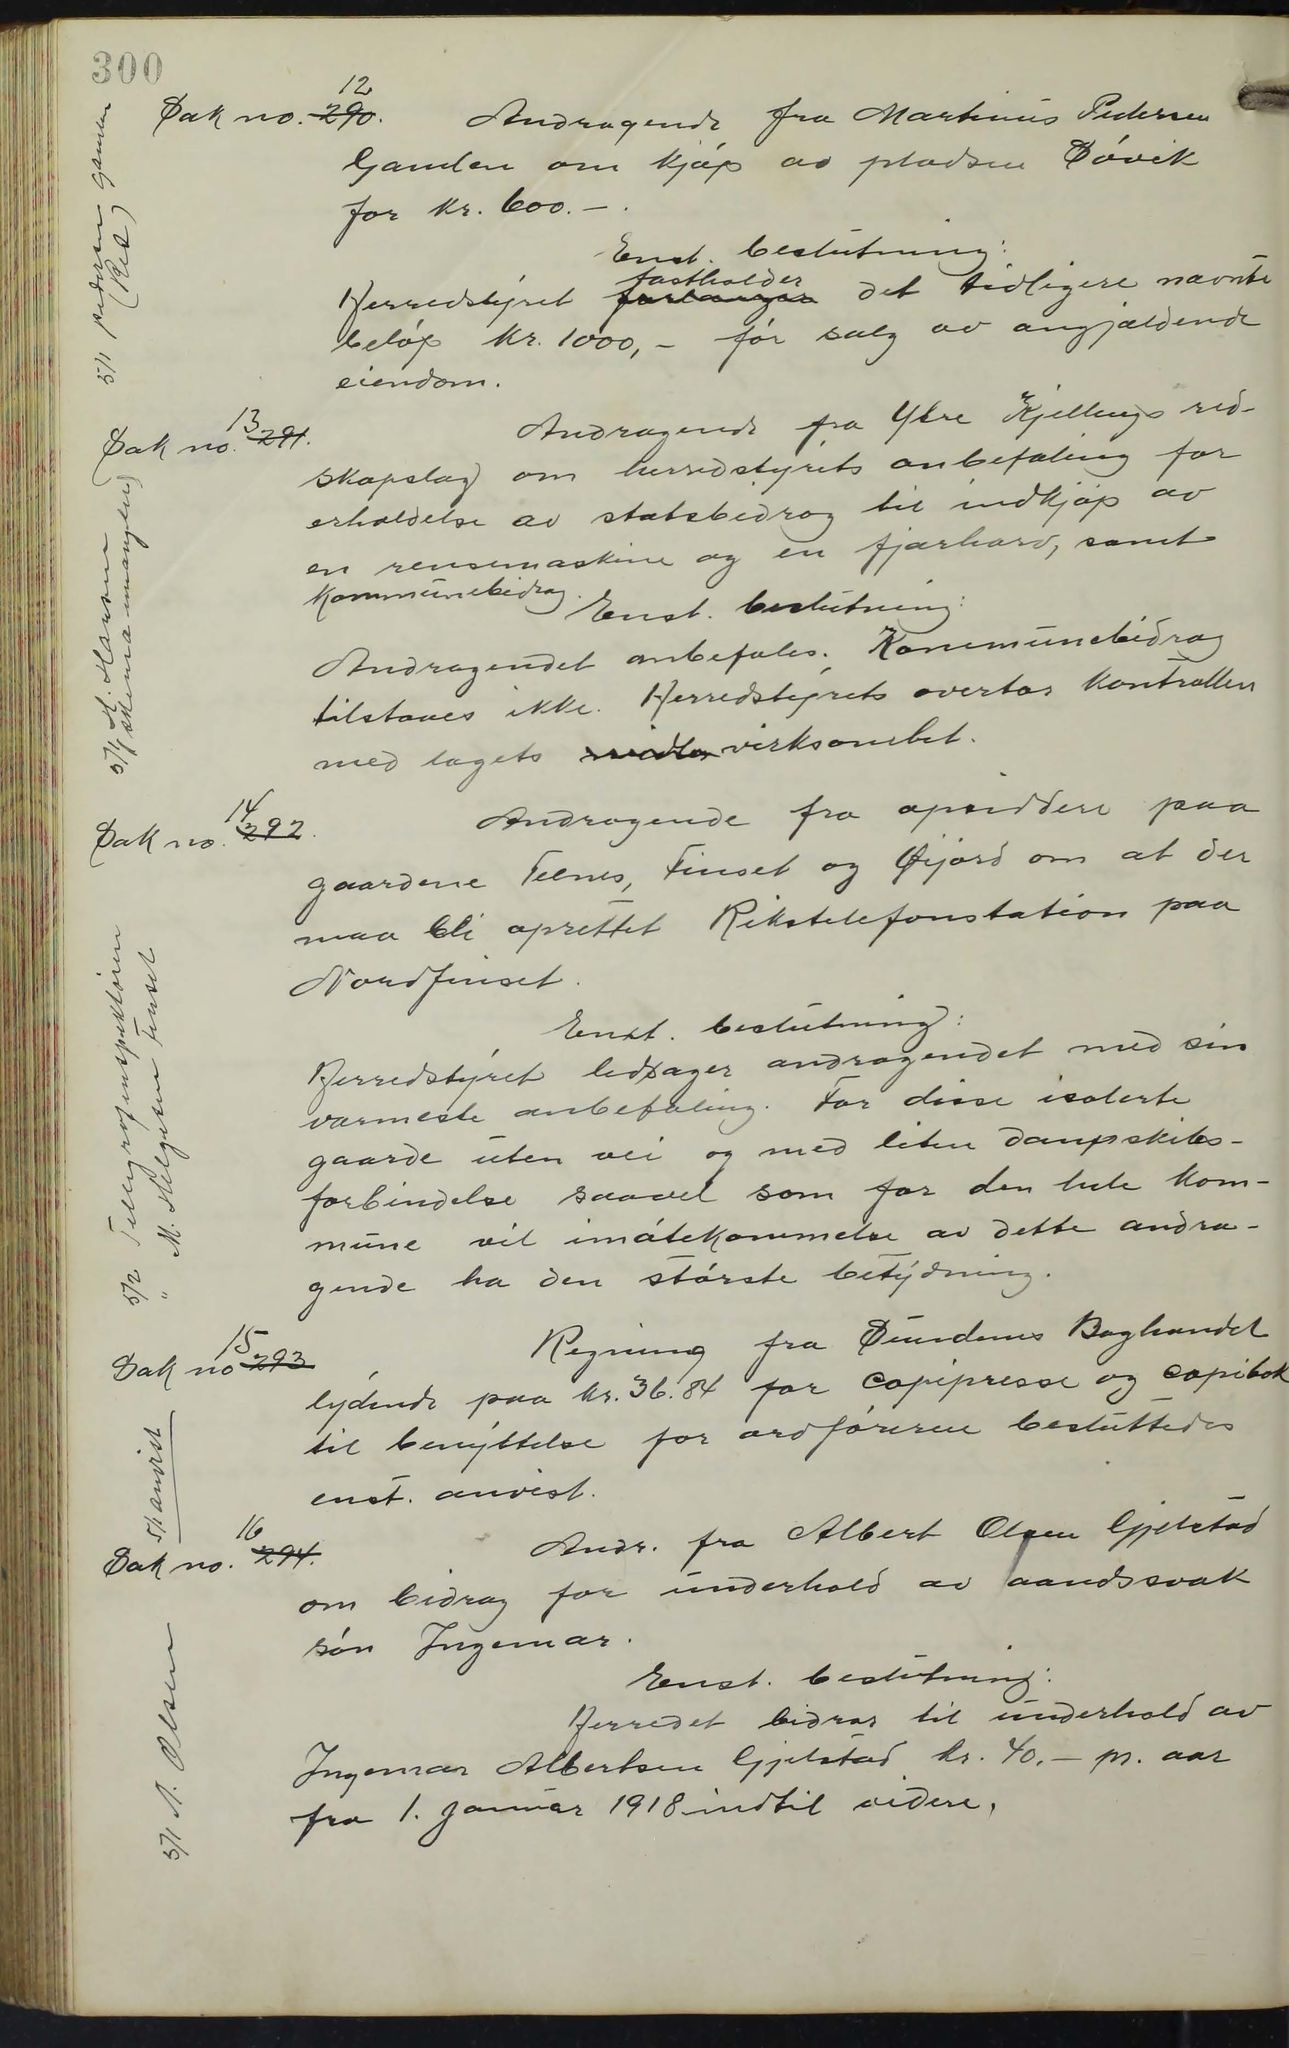 300
12
Sak no. 290. Andragende fra Martinus Pedersen
Ganden om kjöp av pladsen Sövik
for kr. 600.-.
Enst. beslutning:
fastholder
Herredstyret forlanger det tidligere nævnte
belöp kr. 1000,- for salg av angjældende
eiendom.
5/1 Pedersen Ganden
(Red)
13
Sak no. 291. Andragende fra Ytre Kjellings red-
skapslag om herredstyrets anbefaling for
erholdelse av statsbidrag til indkjöp av
en rensemaskine og en fjærharv, samt
kommunebidrag.
Enst. beslutning:
Andragendet anbefales. Kommunebidrag
tilstaaes ikke. Herredstyrets overtar kontrollen
med lagets virksomhet.
5/1 Hansen
skema mangler)
14
Sak no. 292. Andragende fra opsiddere paa
gaardene Telnes, Finset og Øijord om at der
maa bli oprettet Rikstelefonstation paa
Nordfinset.
Enst. beslutning:
Herredstyret ledsager andragendet med sin
varmeste anbefaling. For disse isolerte
gaarde uten vei og med liten dampskibs-
forbindelse saavel som for den hele kom-
mune vil imötekommelse av dette andra-
gende ha den störste betydning.
5/2 Telegrafinspektören
" M. Helgesen Finset
15
Sak no 293 Regning fra Sundenes Boghandel
lydende paa kr. 36.84 for copipresse og copibok
til benyttelse for ordföreren besluttedes
enst. anvist.
5/1 anvist
16
Sak no. 294. Andr. fra Albert Olsen Gjelstad
om bidrag for underhold av aandssvak
sön Ingemar.
Enst. beslutning:
Herredet bidrar til underhold av
Ingemar Albertsen Gjelstad kr. 40.- pr. aar
fra 1. januar 1918 indtil videre.
5/1 A. Olsen